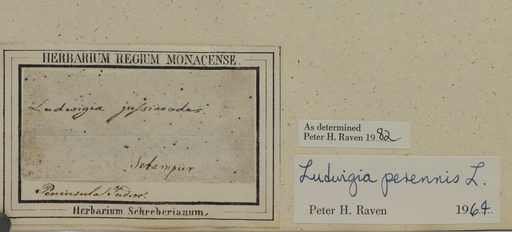 HERBARIUM REGIUM MONACENSE.
Ludwigia jussiaeoides.
Setampur
Peninsula Ind. or.
Herbarium Schreberianum.
As determined
Peter H. Raven 1982
Ludwigia perennis L.
Peter H. Raven 1964